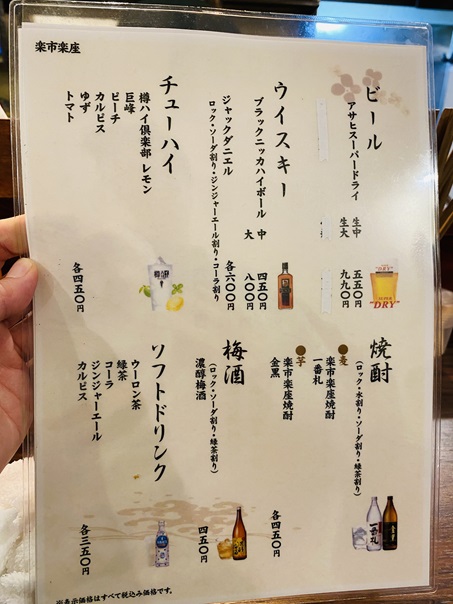 楽市楽座
ビール
アサヒスーパードライ
生中 五五〇円
生大 九九〇円
ウイスキー
ブラックニッカハイボール 中 四五〇円
大 八〇〇円
ジャックダニエル 各六〇〇円
ロック・ソーダ割り・ジンジャーエール割り・コーラ割り
チューハイ
樽ハイ倶楽部 レモン
巨峰
ピーチ
カルピス
ゆず
トマト
各四五〇円
焼酎
(ロック・水割り・ソーダ割り・緑茶割り)
麦
楽市楽座焼酎
一番札
芋
楽市楽座焼酎
金黒
各四五〇円
梅酒
(ロック・ソーダ割り・緑茶割り)
濃醇梅酒 四五〇円
ソフトドリンク
ウーロン茶
緑茶
コーラ
ジンジャーエール
カルピス
各三五〇円
"DRY"
SUPER
"DRY"
一番札
※表示価格はすべて税込み価格です。